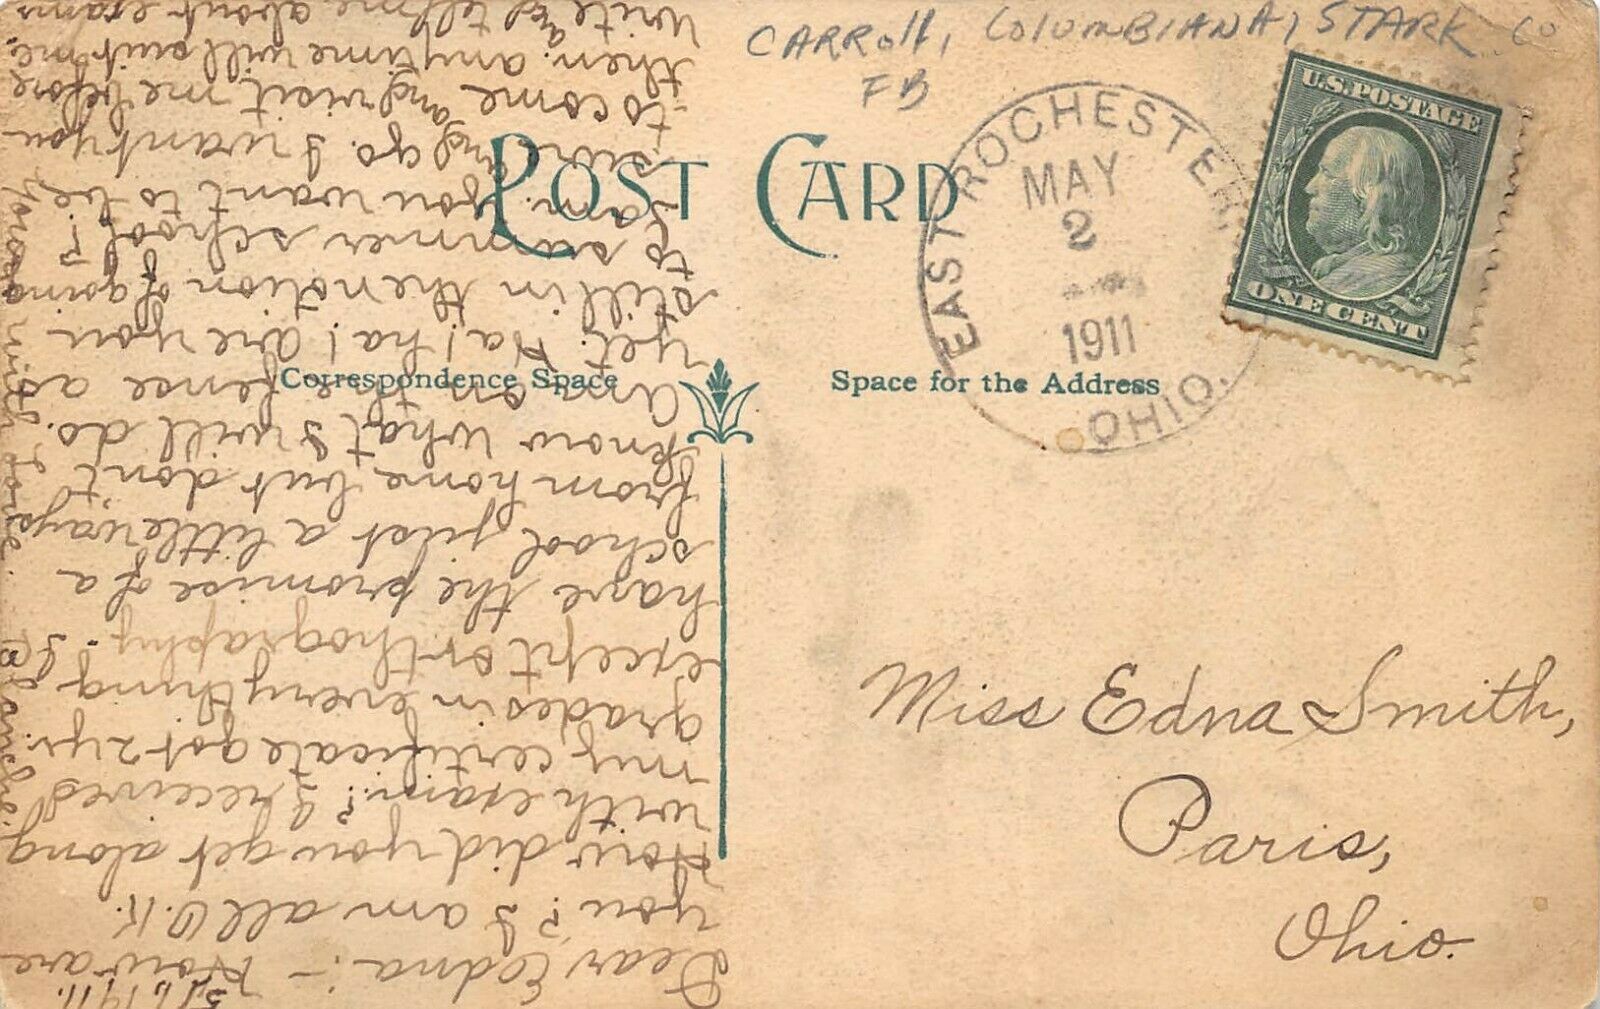 CARROLL, COLUMBIANA, STARK CO
FB
POST CARD
EAST ROCHESTER,
MAY
2
1911
OHIO.
U.S. POSTAGE
ONE CENT
Correspondence Space
Space for the Address
Miss Edna Smith,
Paris,
Ohio.
5/1, 1911.
Dear Edna:- How are
you? I am all O.K.
How did you get along
with exam? I received
my certificate got 2 yr.
grades in everything
except orthography. I
have the promise of a
school just a little ways
from home but don't
know what I will do.
Am on the fence as
yet. Ha! ha! are you
still in the notion of going
to summer school?
Sam. You want to be
sure and go. I want you
to come and visit me before
then. anytime will suit me.
Write and tell me about exam
Yours with love.